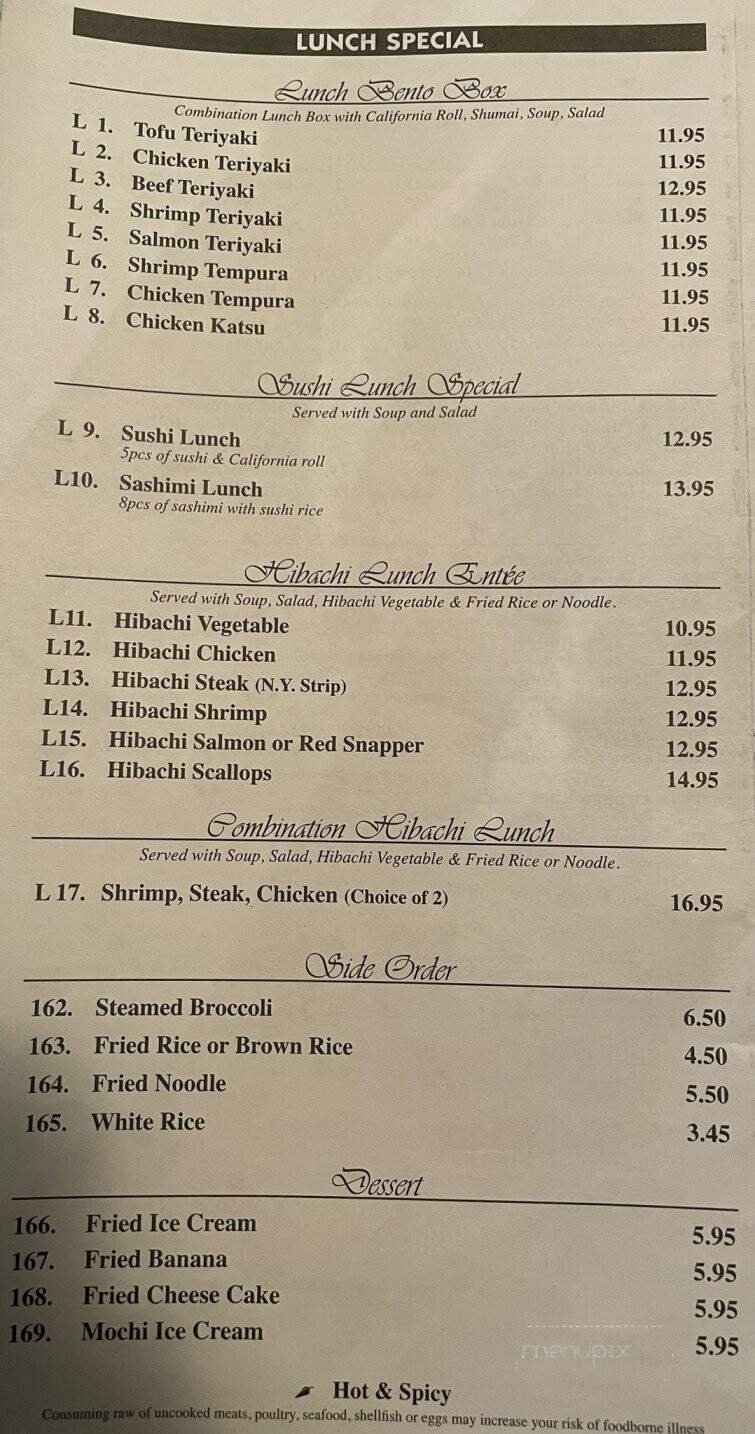 LUNCH SPECIAL
Lunch Bento Box
Combination Lunch Box with California Roll, Shumai, Soup, Salad
L 1. Tofu Teriyaki 11.95
L 2. Chicken Teriyaki 11.95
L 3. Beef Teriyaki 12.95
L 4. Shrimp Teriyaki 11.95
L 5. Salmon Teriyaki 11.95
L 6. Shrimp Tempura 11.95
L 7. Chicken Tempura 11.95
L 8. Chicken Katsu 11.95
Sushi Lunch Special
Served with Soup and Salad
L 9. Sushi Lunch 12.95
5pcs of sushi & California roll
L10. Sashimi Lunch 13.95
8pcs of sashimi with sushi rice
Hibachi Lunch Entrée
Served with Soup, Salad, Hibachi Vegetable & Fried Rice or Noodle.
L11. Hibachi Vegetable 10.95
L12. Hibachi Chicken 11.95
L13. Hibachi Steak (N.Y. Strip) 12.95
L14. Hibachi Shrimp 12.95
L15. Hibachi Salmon or Red Snapper 12.95
L16. Hibachi Scallops 14.95
Combination Hibachi Lunch
Served with Soup, Salad, Hibachi Vegetable & Fried Rice or Noodle.
L 17. Shrimp, Steak, Chicken (Choice of 2) 16.95
Side Order
162. Steamed Broccoli 6.50
163. Fried Rice or Brown Rice 4.50
164. Fried Noodle 5.50
165. White Rice 3.45
Dessert
166. Fried Ice Cream 5.95
167. Fried Banana 5.95
168. Fried Cheese Cake 5.95
169. Mochi Ice Cream 5.95
menupix
Hot & Spicy
Consuming raw of uncooked meats, poultry, seafood, shellfish or eggs may increase your risk of foodborne illness